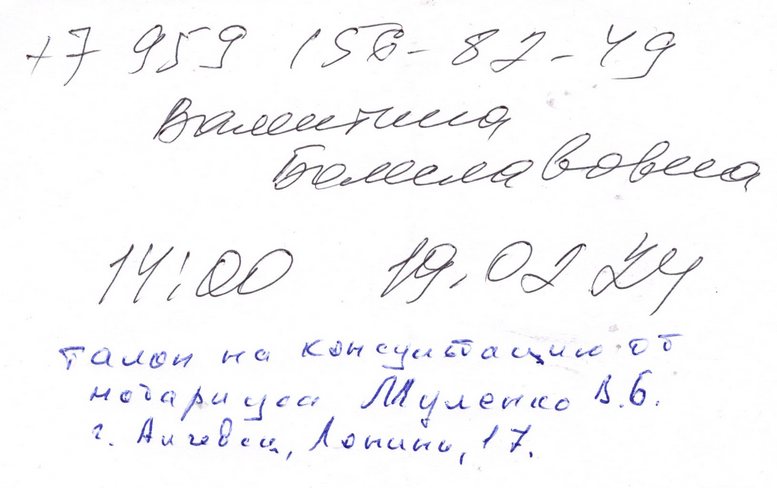 +7 959 156-82-49
Валентина
Болеславовна
14:00 19.02 24
талон на консультацию от
нотариуса Муленко В.Б.
г. Алчевск, Ленина, 17.